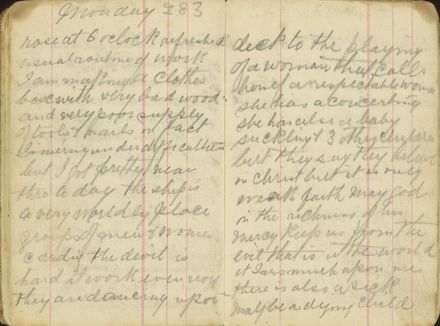 Monday 283
rose at 6 oclock refreshed
usual routine of work
I am making a clothes
box with very bad wood
and very poor supply
of tools & nails in fact
I am
but I got pretty near
thro to day the ship is
a very worldly place
groups of men & women
card in the devil is
hard it work even now
they are dancing upon
deck to the playing
of a woman that calls
a respectable woman
she has a concertina
she has also a baby
suckling & 3 other children
but they say they believe
in christ but it is only
weak faith may god
in the richness of his
mercy keep us from the
evil that is in the world
it bears much upon me
there is also a sick
maby be a dying child